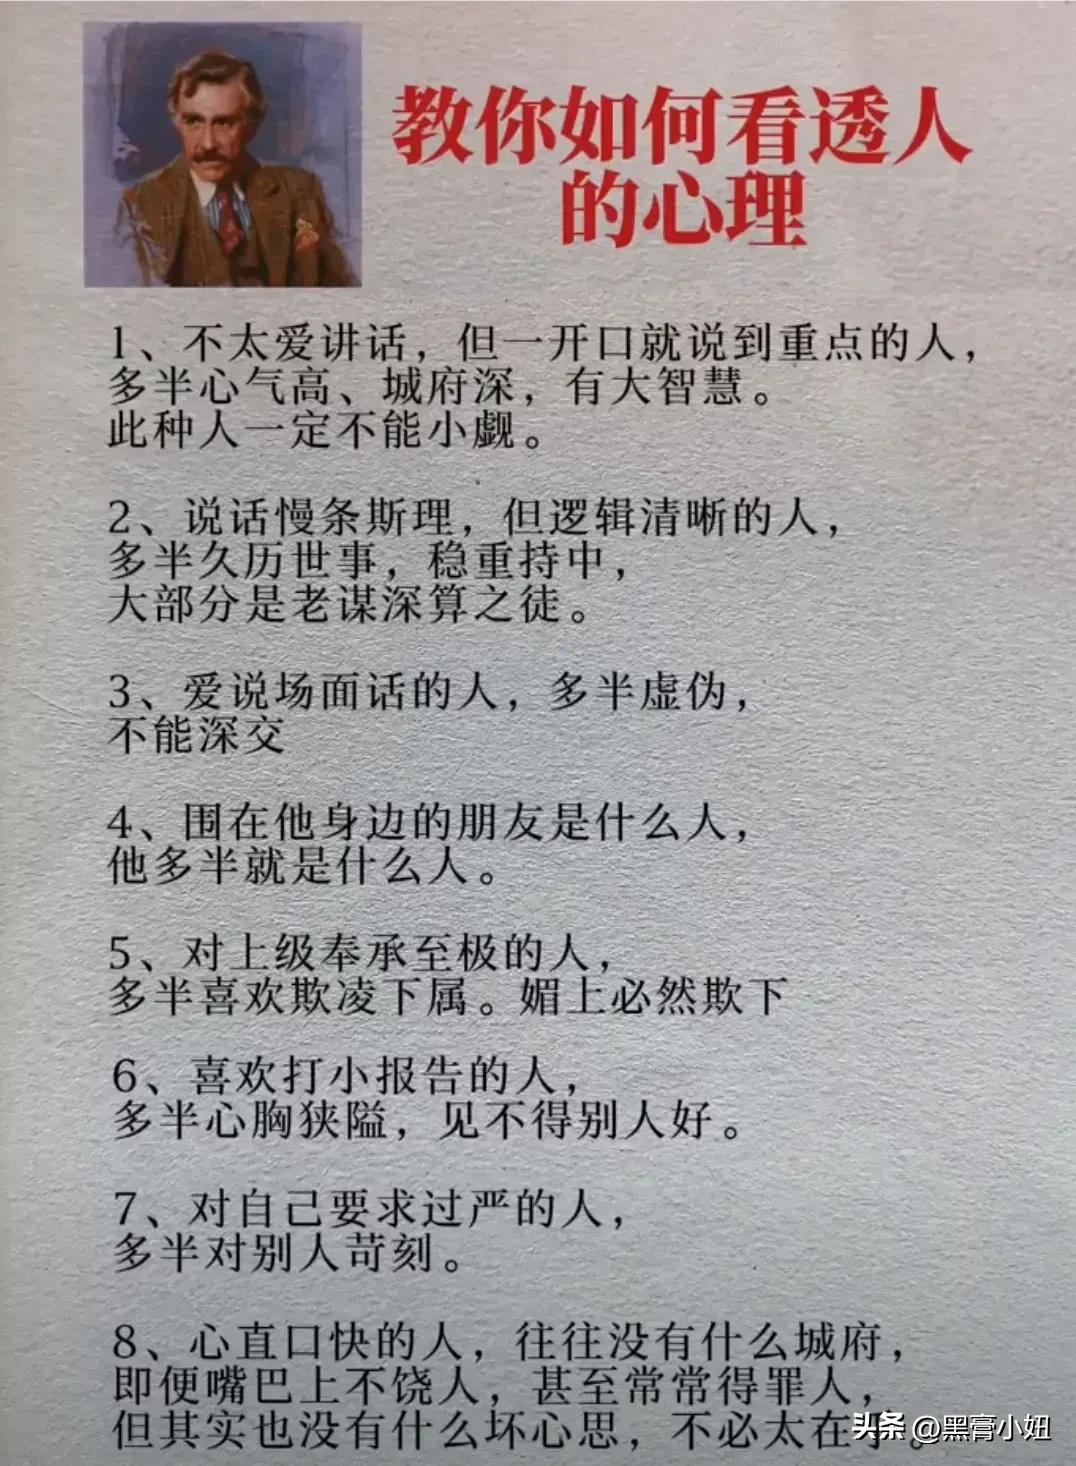 教你如何看透人
的心理
1、不太爱讲话，但一开口就说到重点的人，
多半心气高、城府深，有大智慧。
此种人一定不能小觑。
2、说话慢条斯理，但逻辑清晰的人，
多半久历世事，稳重持中，
大部分是老谋深算之徒。
3、爱说场面话的人，多半虚伪，
不能深交
4、围在他身边的朋友是什么人，
他多半就是什么人。
5、对上级奉承至极的人，
多半喜欢欺凌下属。媚上必然欺下
6、喜欢打小报告的人，
多半心胸狭隘，见不得别人好。
7、对自己要求过严的人，
多半对别人苛刻。
8、心直口快的人，往往没有什么城府，
即便嘴巴上不饶人，甚至常常得罪人，
但其实也没有什么坏心思，不必太在乎。
头条 @黑膏小妞